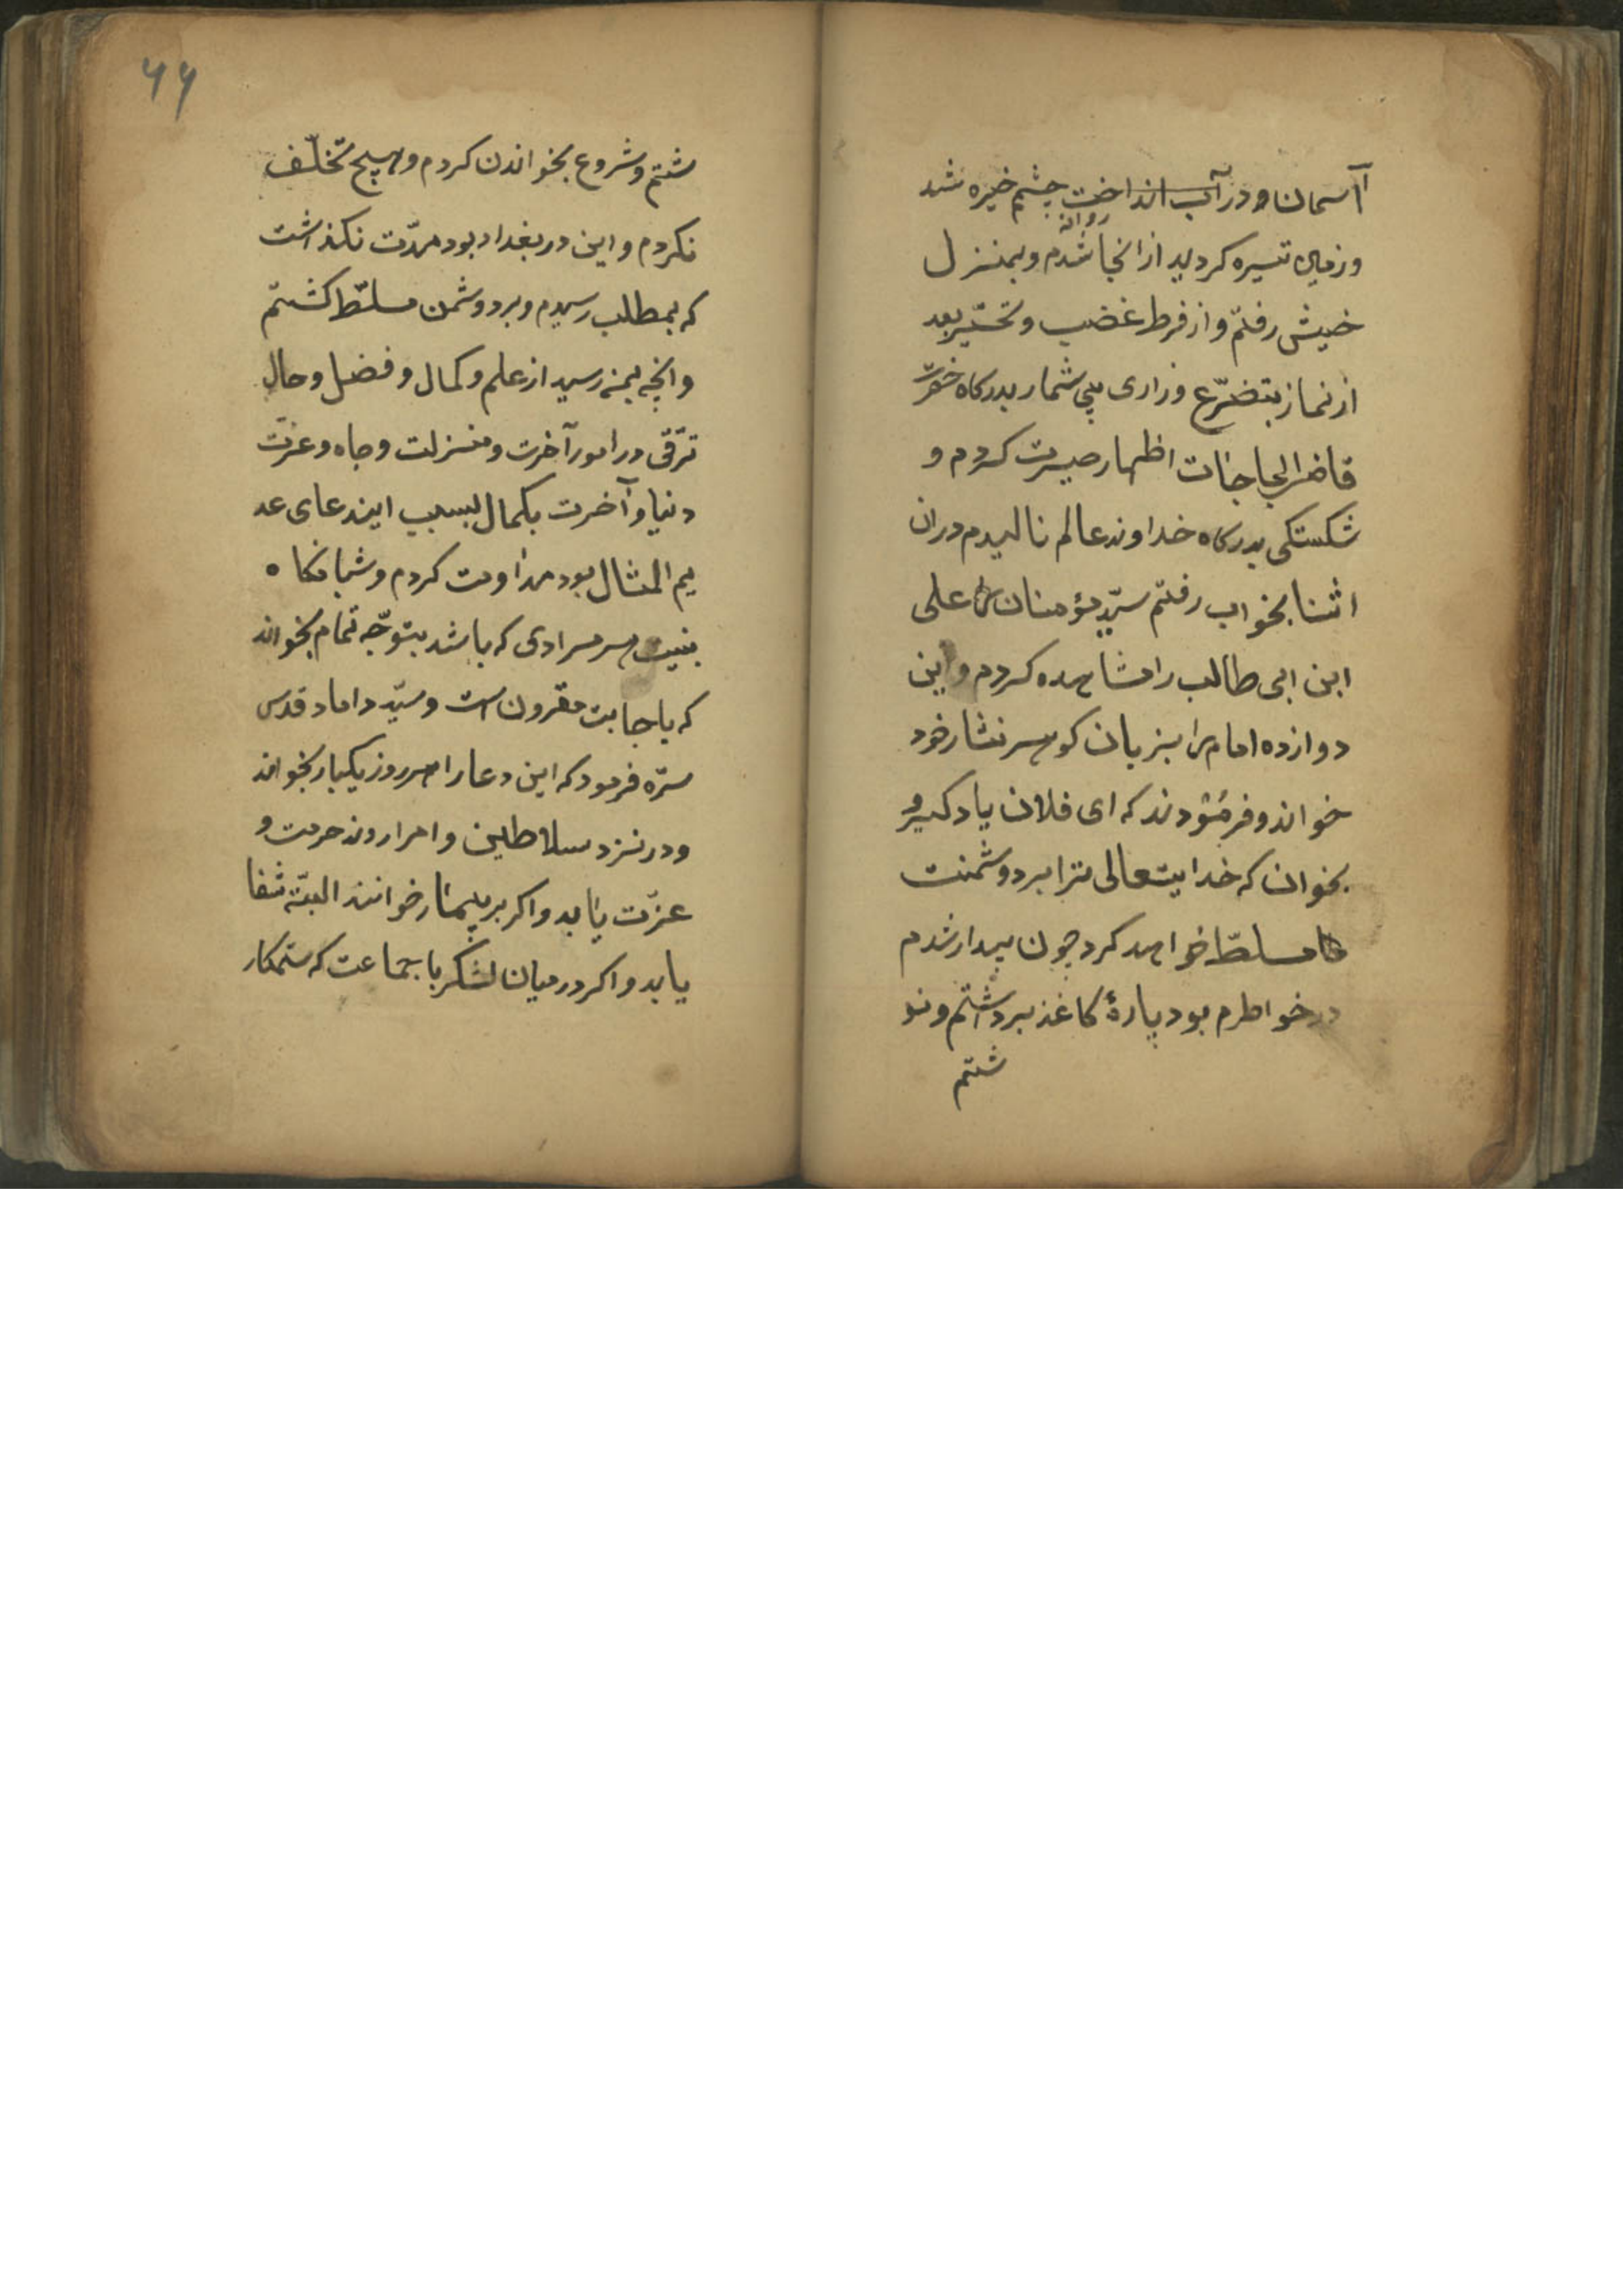 آسمان و در آب انداخت چشم خیره شد
و زمین تیره کردید از انجا روانه شدم و بمنزل
خیش رفتم و از فرط غضب و تحسّر بعد
از نماز بتضرّع و زاری بی شمار بدرکاه حضرت
قاضی الحاجات اظهار حیرت کردم و
شکستکی بدرکاه خداوند عالم نالیدم دران
اثنا بخواب رفتم سیّد مؤمنان علی
ابن ابی طالب را مشاهده کردم و این
دوازده امام را بزبان کوهر نثار خود
خواند و فرمودند که ای فلان یاد کیر و
بخوان که خدایتعالی ترا بر دوشمنت
مسلطّ خواهد کرد چون بیدار شدم
در خواطرم بود پارهٔ کاغذ برداشتم و نو
شتم
۶۶
شتم و شروع بخواندن کردم و هیچ تخلّف
نکردم و این در بغداد بود مدّت نکذاشت
که بمطلب رسیدم و بر دوشمن مسلّط کشتم
و انچه بمن رسید از علم و کمال و فضل و حال
ترّقی در امور آخرت و منزلت و جاه و عزّت
دنیا و آخرت بکمال بسبب ایندعای عد
یم المثال بود مداومت کردم و شما نکاه
بنیت هر مرادی که باشد بتوجّه تمام بخواند
که باجابت مقرون است و سیّد داماد قدس
سرّه فرمود که این دعا را هر روز یکبار بخواند
و در نزد سلاطین و امرا روند حرمت و
عزّت یابد و اکر بر بیمار خوانند البتّه شفا
یابد و اکر در میان لشکر با جماعت که ستمکار